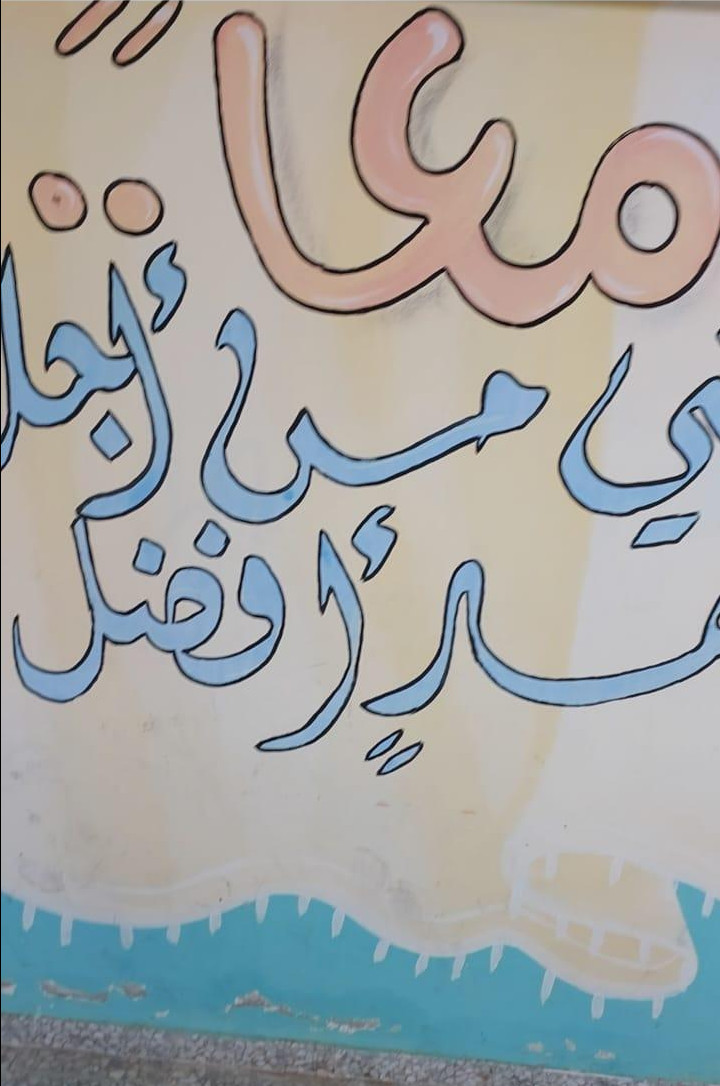 معاً
من أجل
غدٍ أفضل